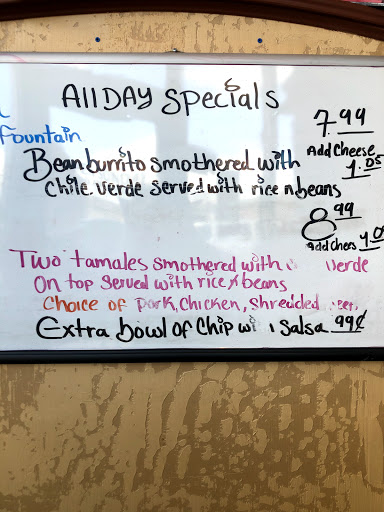 All DAY Specials
fountain
7.99
Bean burrito smothered with
Add Cheese
1.05
chile verde served with rice n beans
8.99
add chees
Two tamales smothered with verde
On top served with rice n beans
Choice of pork, chicken, shredded
Extra bowl of chip salsa 99¢